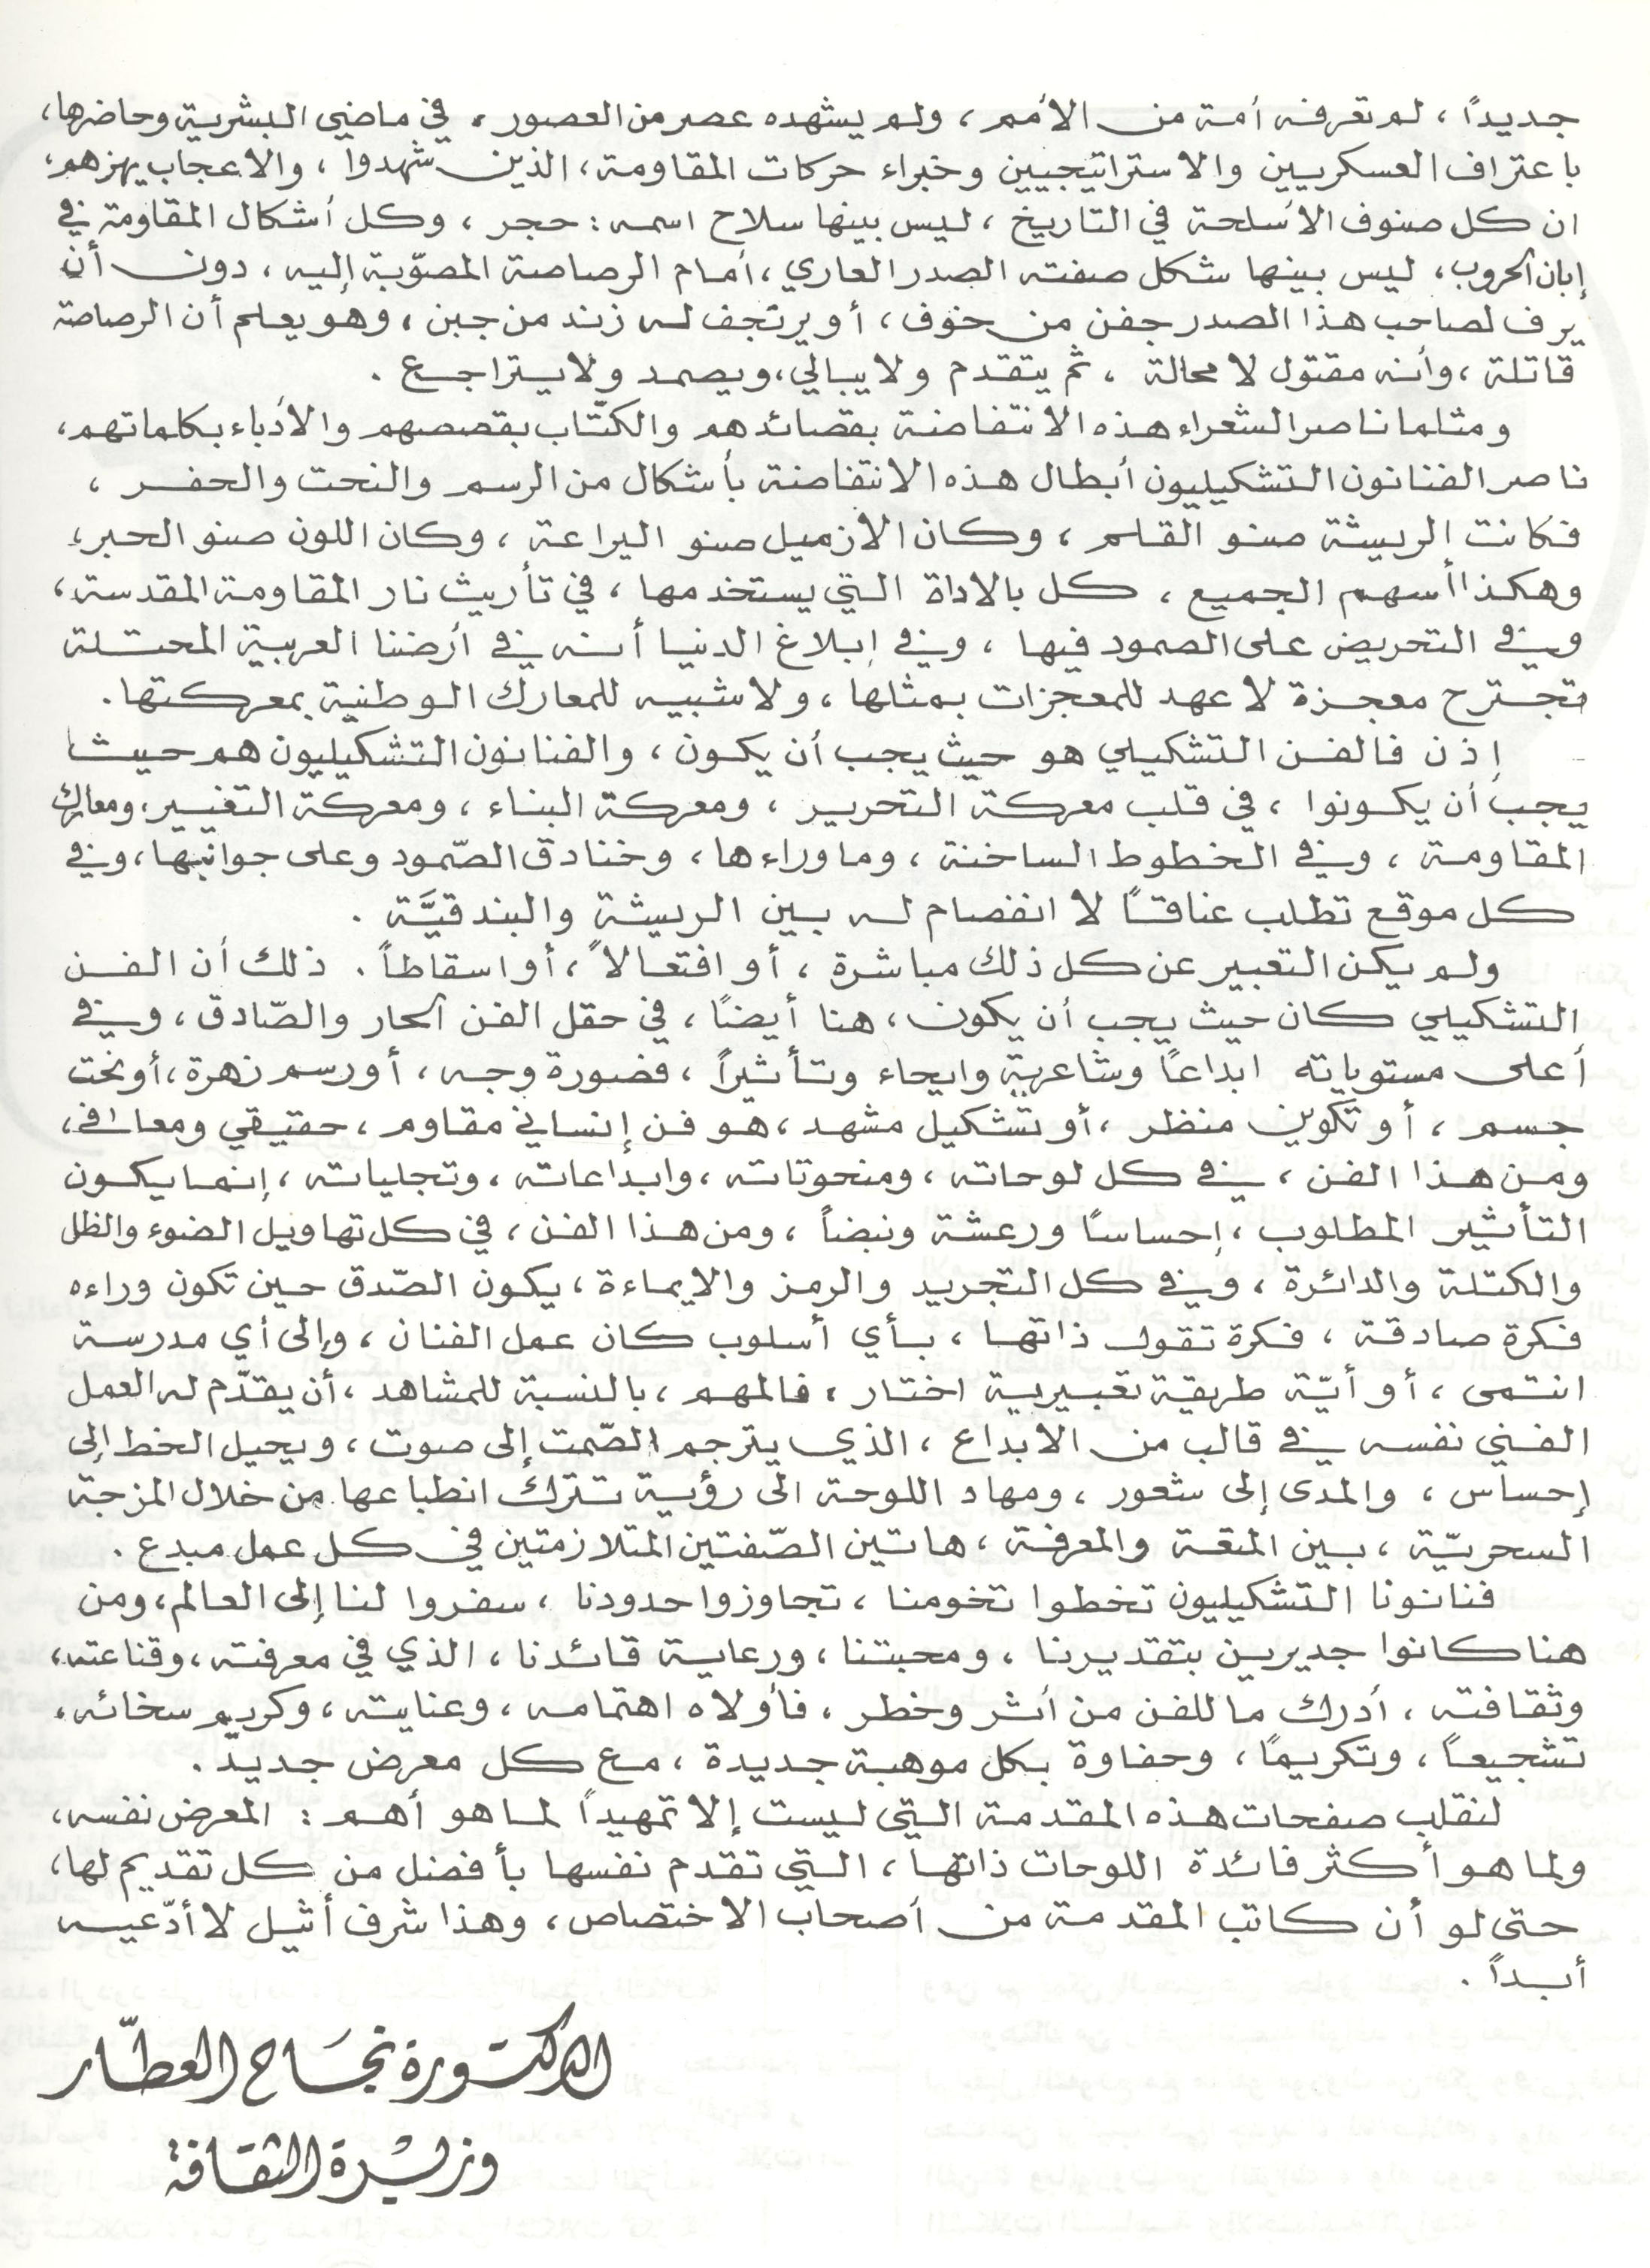 جديداً ، لم تعرفه أمة من الأمم ، ولم يشهده عصر من العصور ، في ماضي البشرية وحاضرها ،
باعتراف العسكريين والاستراتيجيين وخبراء حركات المقاومة ، الذين شهدوا ، والاعجاب يهزهم ،
ان كل صنوف الأسلحة في التاريخ ، ليس بينها سلاح اسمه : حجر ، وكل أشكال المقاومة في
إبان الحروب ، ليس بينها شكل صفته الصدر العاري ، أمام الرصاصة المصوّبة إليه ، دون أن
يرف لصاحب هذا الصدر جفن من خوف ، أو يرتجف له زند من جبن ، وهو يعلم أن الرصاصة
قاتلة ، وأنه مقتول لا محالة ، ثم يتقدم ولا يبالي ، ويصمد ولا يتراجع .
ومثلما ناصر الشعراء هذه الانتفاضة بقصائدهم والكتّاب بقصصهم والأدباء بكلماتهم ،
ناصر الفنانون التشكيليون أبطال هذه الانتفاضة بأشكال من الرسم والنحت والحفر ،
فكانت الريشة صنو القلم ، وكان الازميل صنو اليراعة ، وكان اللون صنو الحبر ،
وهكذا أسهم الجميع ، كل بالاداة التي يستخدمها ، في تأريث نار المقاومة المقدسة ،
وفي التحريض على الصمود فيها ، وفي إبلاغ الدنيا أنه في أرضنا العربية المحتلة
تجترح معجزة لا عهد للمعجزات بمثلها ، ولا شبيه للمعارك الوطنية بمعركتها .
إذن فالفن التشكيلي هو حيث يجب أن يكون ، والفنانون التشكيليون هم حيث
يجب أن يكونوا ، في قلب معركة التحرير ، ومعركة البناء ، ومعركة التغيير ، ومعارك
المقاومة ، وفي الخطوط الساخنة ، وما وراءها ، وخنادق الصّمود وعلى جوانبها ، وفي
كل موقع تطلب عناقاً لا انفصام له بين الريشة والبندقيَّة .
ولم يكن التعبير عن كل ذلك مباشرة ، أو افتعالاً ، أو اسقاطاً . ذلك أن الفن
التشكيلي كان حيث يجب أن يكون ، هنا أيضاً ، في حقل الفن الحار والصّادق ، وفي
أعلى مستوياته ابداعاً وشاعرية وايحاء وتأثيراً ، فصورة وجه ، أو رسم زهرة ، أو نحت
جسم ، أو تكوين منظر ، أو تشكيل مشهد ، هو فن إنساني مقاوم ، حقيقي ومعافى ،
ومن هذا الفن ، في كل لوحاته ، ومنحوتاته ، وابداعاته ، وتجلياته ، إنما يكون
التأثير المطلوب ، إحساساً ورعشة ونبضاً ، ومن هذا الفن ، في كل تهاويل الضوء والظل
والكتلة والدائرة ، وفي كل التجريد والرمز والايماءة ، يكون الصّدق حين تكون وراءه
فكرة صادقة ، فكرة تقول ذاتها ، بأي أسلوب كان عمل الفنان ، وإلى أي مدرسة
انتمى ، أو أيّة طريقة تعبيرية اختار ، فالمهم ، بالنسبة للمشاهد ، أن يقدّم له العمل
الفني نفسه في قالب من الابداع ، الذي يترجم الصّمت إلى صوت ، ويحيل الخط إلى
إحساس ، والمدى إلى شعور ، ومهاد اللوحة الى رؤية تترك انطباعها من خلال المزجة
السحريّة ، بين المتعة والمعرفة ، هاتين الصّفتين المتلازمتين في كل عمل مبدع .
فنانونا التشكيليون تخطوا تخومنا ، تجاوزوا حدودنا ، سفروا لنا إلى العالم ، ومن
هنا كانوا جديرين بتقديرنا ، ومحبتنا ، ورعاية قائدنا ، الذي في معرفته ، وقناعته ،
وثقافته ، أدرك ما للفن من أثر وخطر ، فأولاه اهتمامه ، وعنايته ، وكريم سخائه ،
تشجيعاً ، وتكريماً ، وحفاوة بكل موهبة جديدة ، مع كل معرض جديد .
لنقلب صفحات هذه المقدمة التي ليست إلا تمهيداً لما هو أهم : المعرض نفسه ،
ولما هو أكثر فائدة اللوحات ذاتها ، التي تقدم نفسها بأفضل من كل تقديم لها ،
حتى لو أن كاتب المقدمة من أصحاب الاختصاص ، وهذا شرف أثيل لا أدّعيه
أبداً .
الدكتورة نجَاح العطّار
وزيرة الثقافة